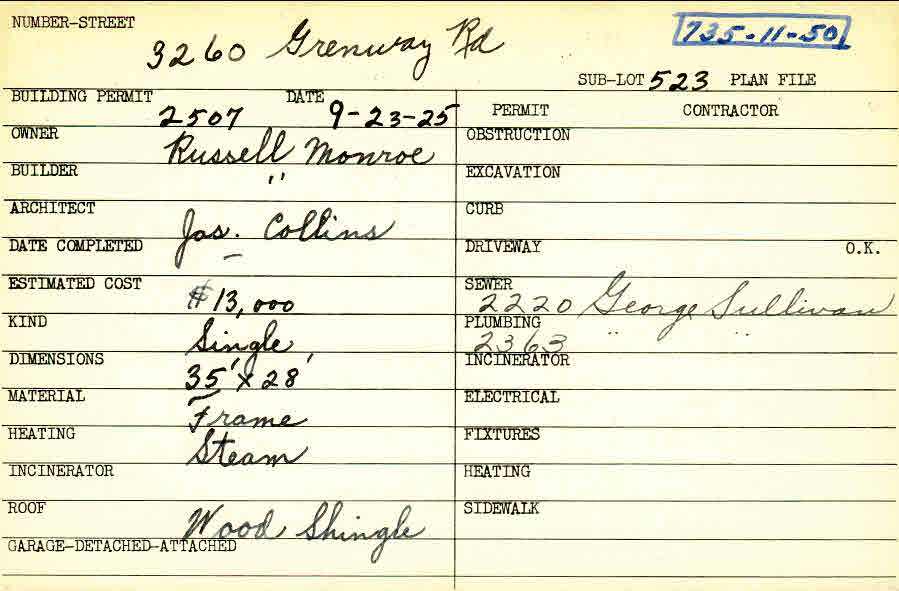 NUMBER-STREET
3260 Grenway Rd
735-11-50
SUB-LOT 523 PLAN FILE
BUILDING PERMIT 2507 DATE 9-23-25
PERMIT CONTRACTOR
OWNER Russell Monroe
OBSTRUCTION
BUILDER "
EXCAVATION
ARCHITECT Jas. Collins
CURB
DATE COMPLETED —
DRIVEWAY O.K.
ESTIMATED COST $13,000
SEWER 2220 George Sullivan
KIND Single
PLUMBING 2363 " "
DIMENSIONS 35' x 28'
INCINERATOR
MATERIAL Frame
ELECTRICAL
HEATING Steam
FIXTURES
INCINERATOR
HEATING
ROOF Wood Shingle
SIDEWALK
GARAGE-DETACHED-ATTACHED